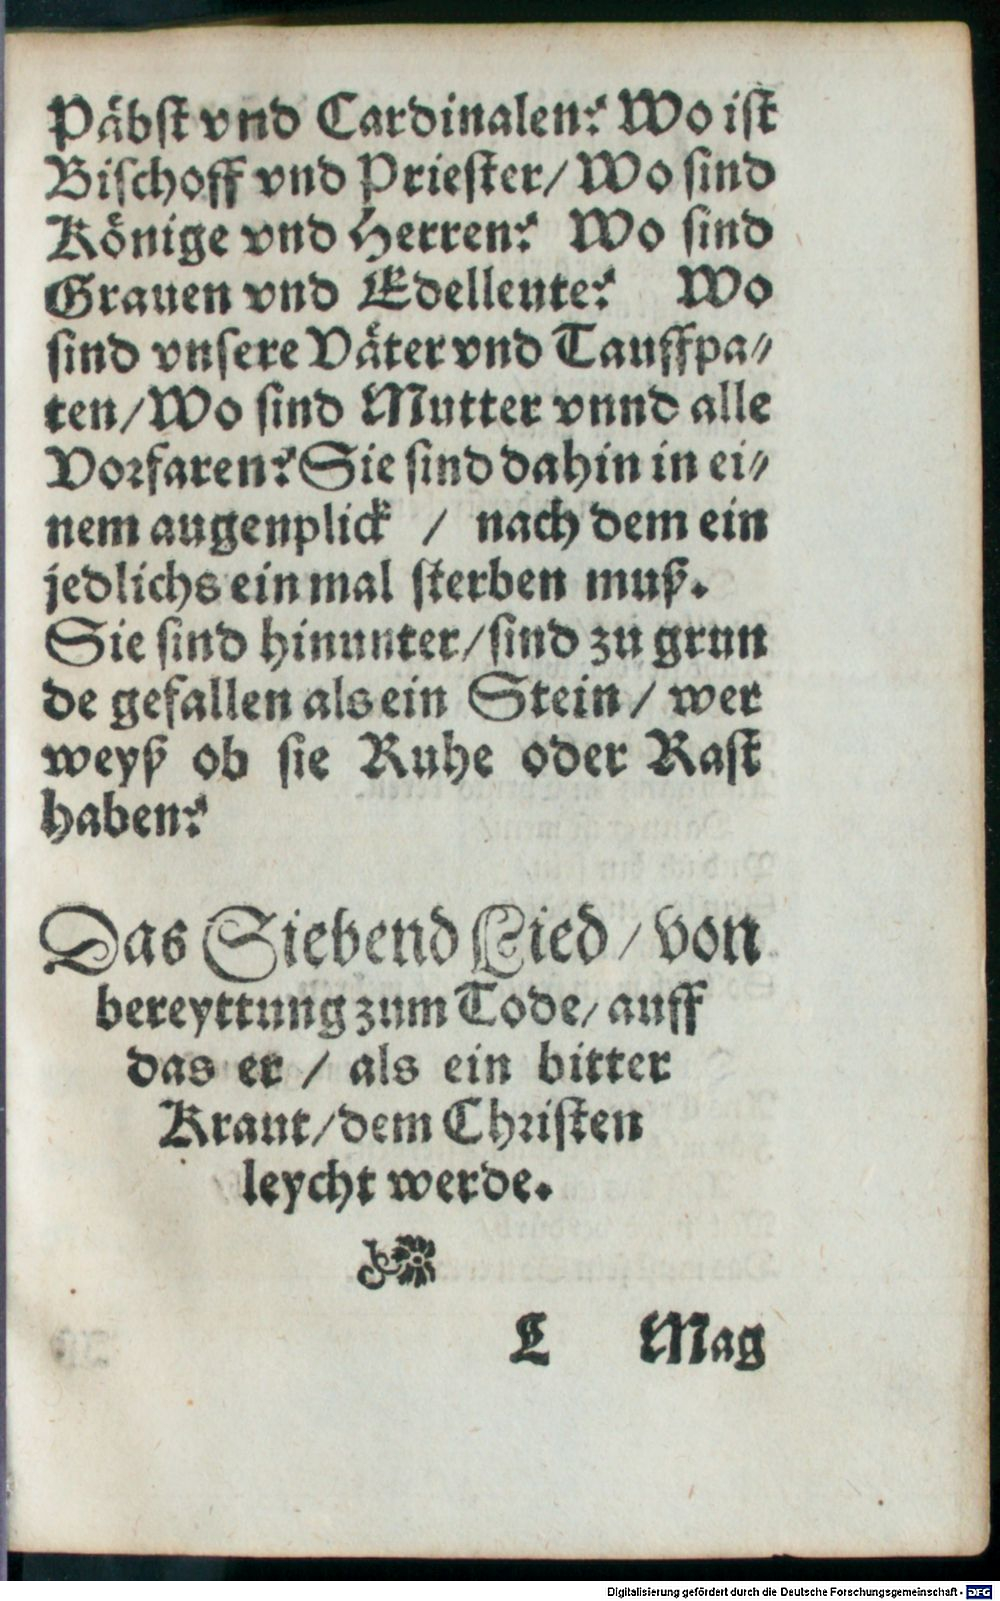 Päbst vnd Cardinalen? Wo ist
Bischoff vnd Priester/ Wo sind
Könige vnd Herren? Wo sind
Grauen vnd Edelleute? Wo
sind vnsere Väter vnd Tauffpa-
ten/ Wo sind Mutter vnnd alle
Vorfaren? Sie sind dahin in ei-
nem augenplick / nach dem ein
jedlichs ein mal sterben muß.
Sie sind hinunter/ sind zu grun
de gefallen als ein Stein / wer
weyß ob sie Ruhe oder Rast
haben?
Das Siebend Lied / von
bereyttung zum Tode/ auff
das er / als ein bitter
Kraut/ dem Christen
leycht werde.
L Mag
Digitalisierung gefördert durch die Deutsche Forschungsgemeinschaft - DFG